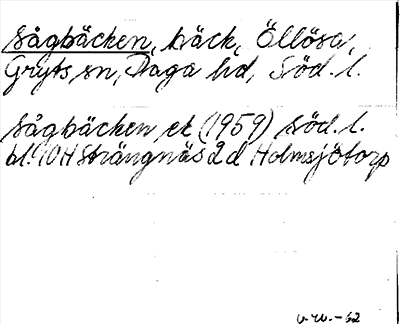 Sågbäcken, bäck, Öllösa,
Gryts sn, Daga hd, Söd. l.
Sågbäcken ek (1959) Söd. l.
bl. 10H Strängnäs 2d Holmsjötorp
-62